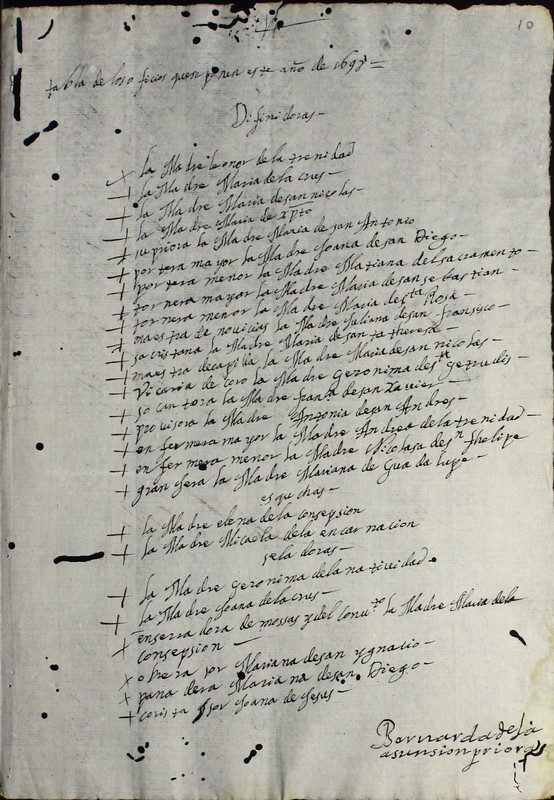 10
tabla de los oficios que se ponen este año de 1698 =
Difinidoras -
la Madre leonor de la trenidad
la Madre Maria de la crus -
la Madre Maria de san nicolas -
la Madre Maria de xpto
supriora la Madre Maria de san Antonio
portera mayor la Madre Joana de san Diego -
portera menor la Madre Matiana del sacramento -
tornera mayor la Madre Maria de san sebastian -
tornera menor la Madre Maria de sta Rosa -
maestra de novicias la Madre Juliana de san fransisco -
sacristana la Madre Maria de santa theresa -
maestra de capilla la Madre Maria de san nicolas -
Vicaria de coro la Madre geronima de sta getrudis -
socantora la Madre franca de san Xavier -
provisora la Madre Antonia de san Andres -
enfermera mayor la Madre Andrea de la trenidad -
enfermera menor la Madre Nicolasa de sn phelipe
granjera la Madre Mariana de Guadalupe -
esquchas -
la Madre elena de la consepsion
la Madre Micaela de la encarnacion
seladoras -
la Madre geronima de la natividad -
la Madre Joana de la crus -
enserradora de mossas y del Convto la Madre Maria de la
consepsion -
obrera sor Mariana de san ygnacio -
panadera Mariana de san Diego -
corista sor Joana de Jesus -
Bernarda de la
asunsion priora